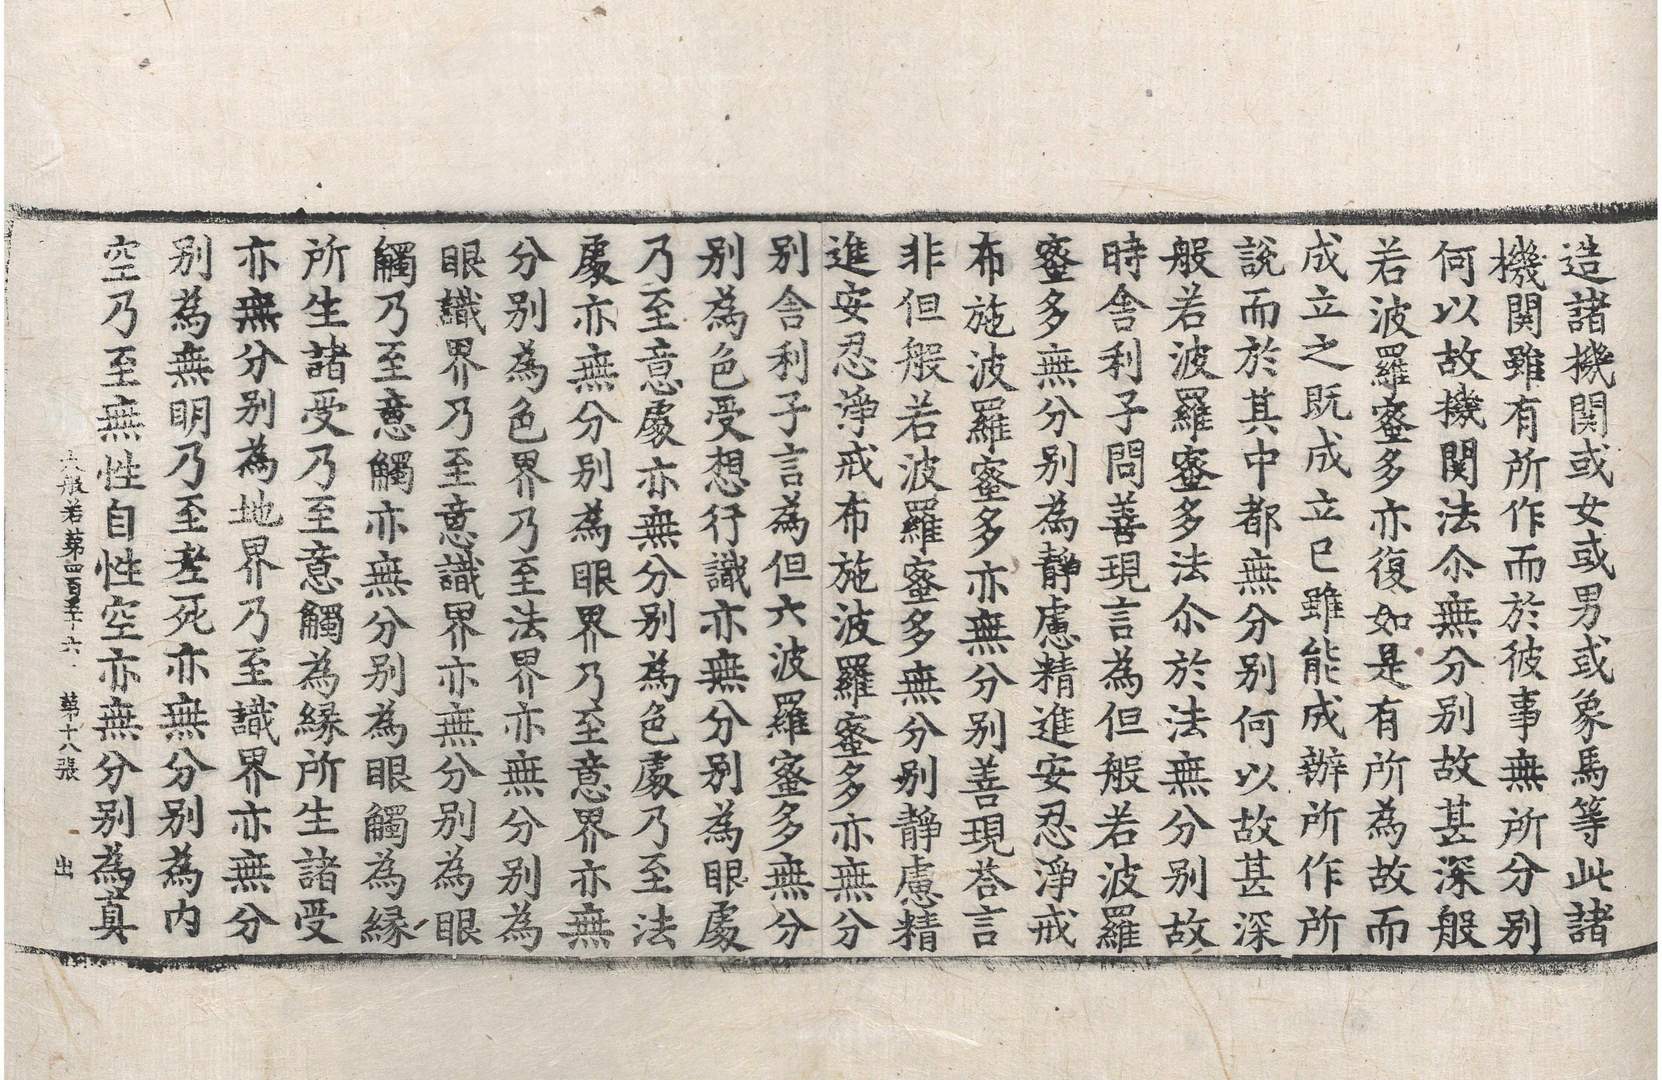 造諸機関或女或男或象馬等此諸
機関雖有所作而於彼事無所分別
何以故機関法尒無分別故甚深般
若波羅蜜多亦復如是有所為故而
成立之既成立已雖能成辦所作所
説而於其中都無分別何以故甚深
般若波羅蜜多法尒於法無分別故
時舎利子問善現言為但般若波羅
蜜多無分別為静慮精進安忍淨戒
布施波羅蜜多亦無分別善現荅言
非但般若波羅蜜多無分別静慮精
進安忍淨戒布施波羅蜜多亦無分
別舎利子言為但六波羅蜜多無分
別為色受想行識亦無分別為眼處
乃至意處亦無分別為色處乃至法
處亦無分別為眼界乃至意界亦無
分別為色界乃至法界亦無分別為
眼識界乃至意識界亦無分別為眼
觸乃至意觸亦無分別為眼觸為縁
所生諸受乃至意觸為縁所生諸受
亦無分別為地界乃至識界亦無分
別為無明乃至老死亦無分別為内
空乃至無性自性空亦無分別為真
大般若第四百五十六 第十八張 出